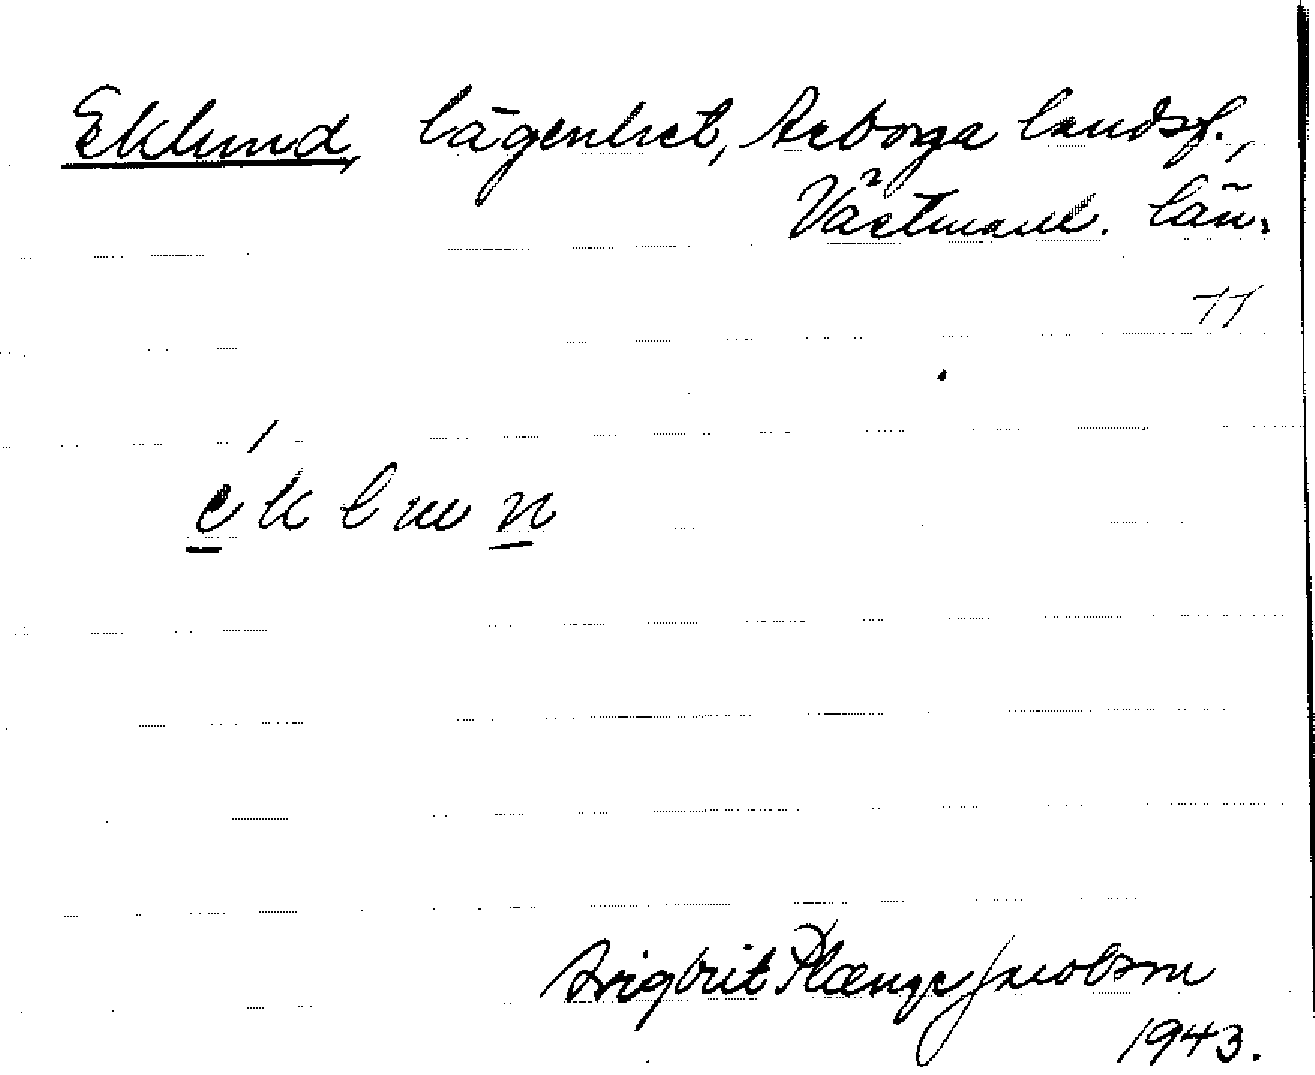 Eklund, lägenhet, Arboga landsf.,
Västmanl. län.
ék l u n
Plænge Jacobson
1943.